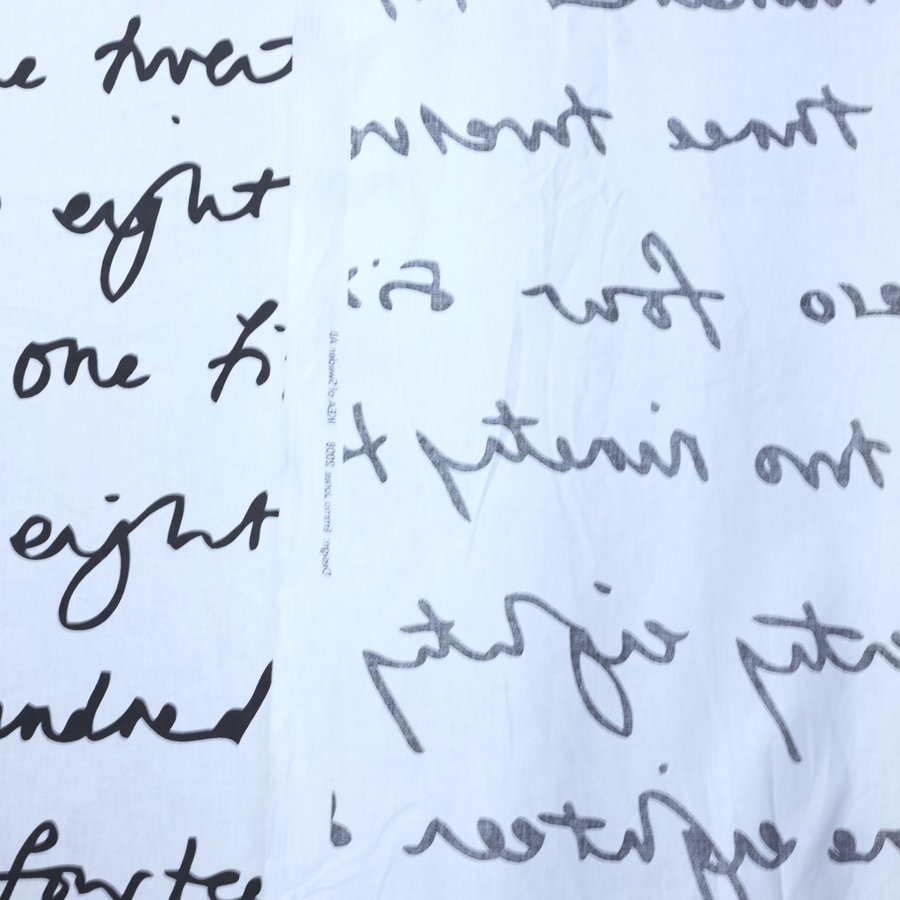 twen
eight
one fi
eight
ndred
fourtee
three twen
ero four
two ninety
ty eighty
ne eighteen
Design: Emma Jones 2008 IKEA of Sweden AB